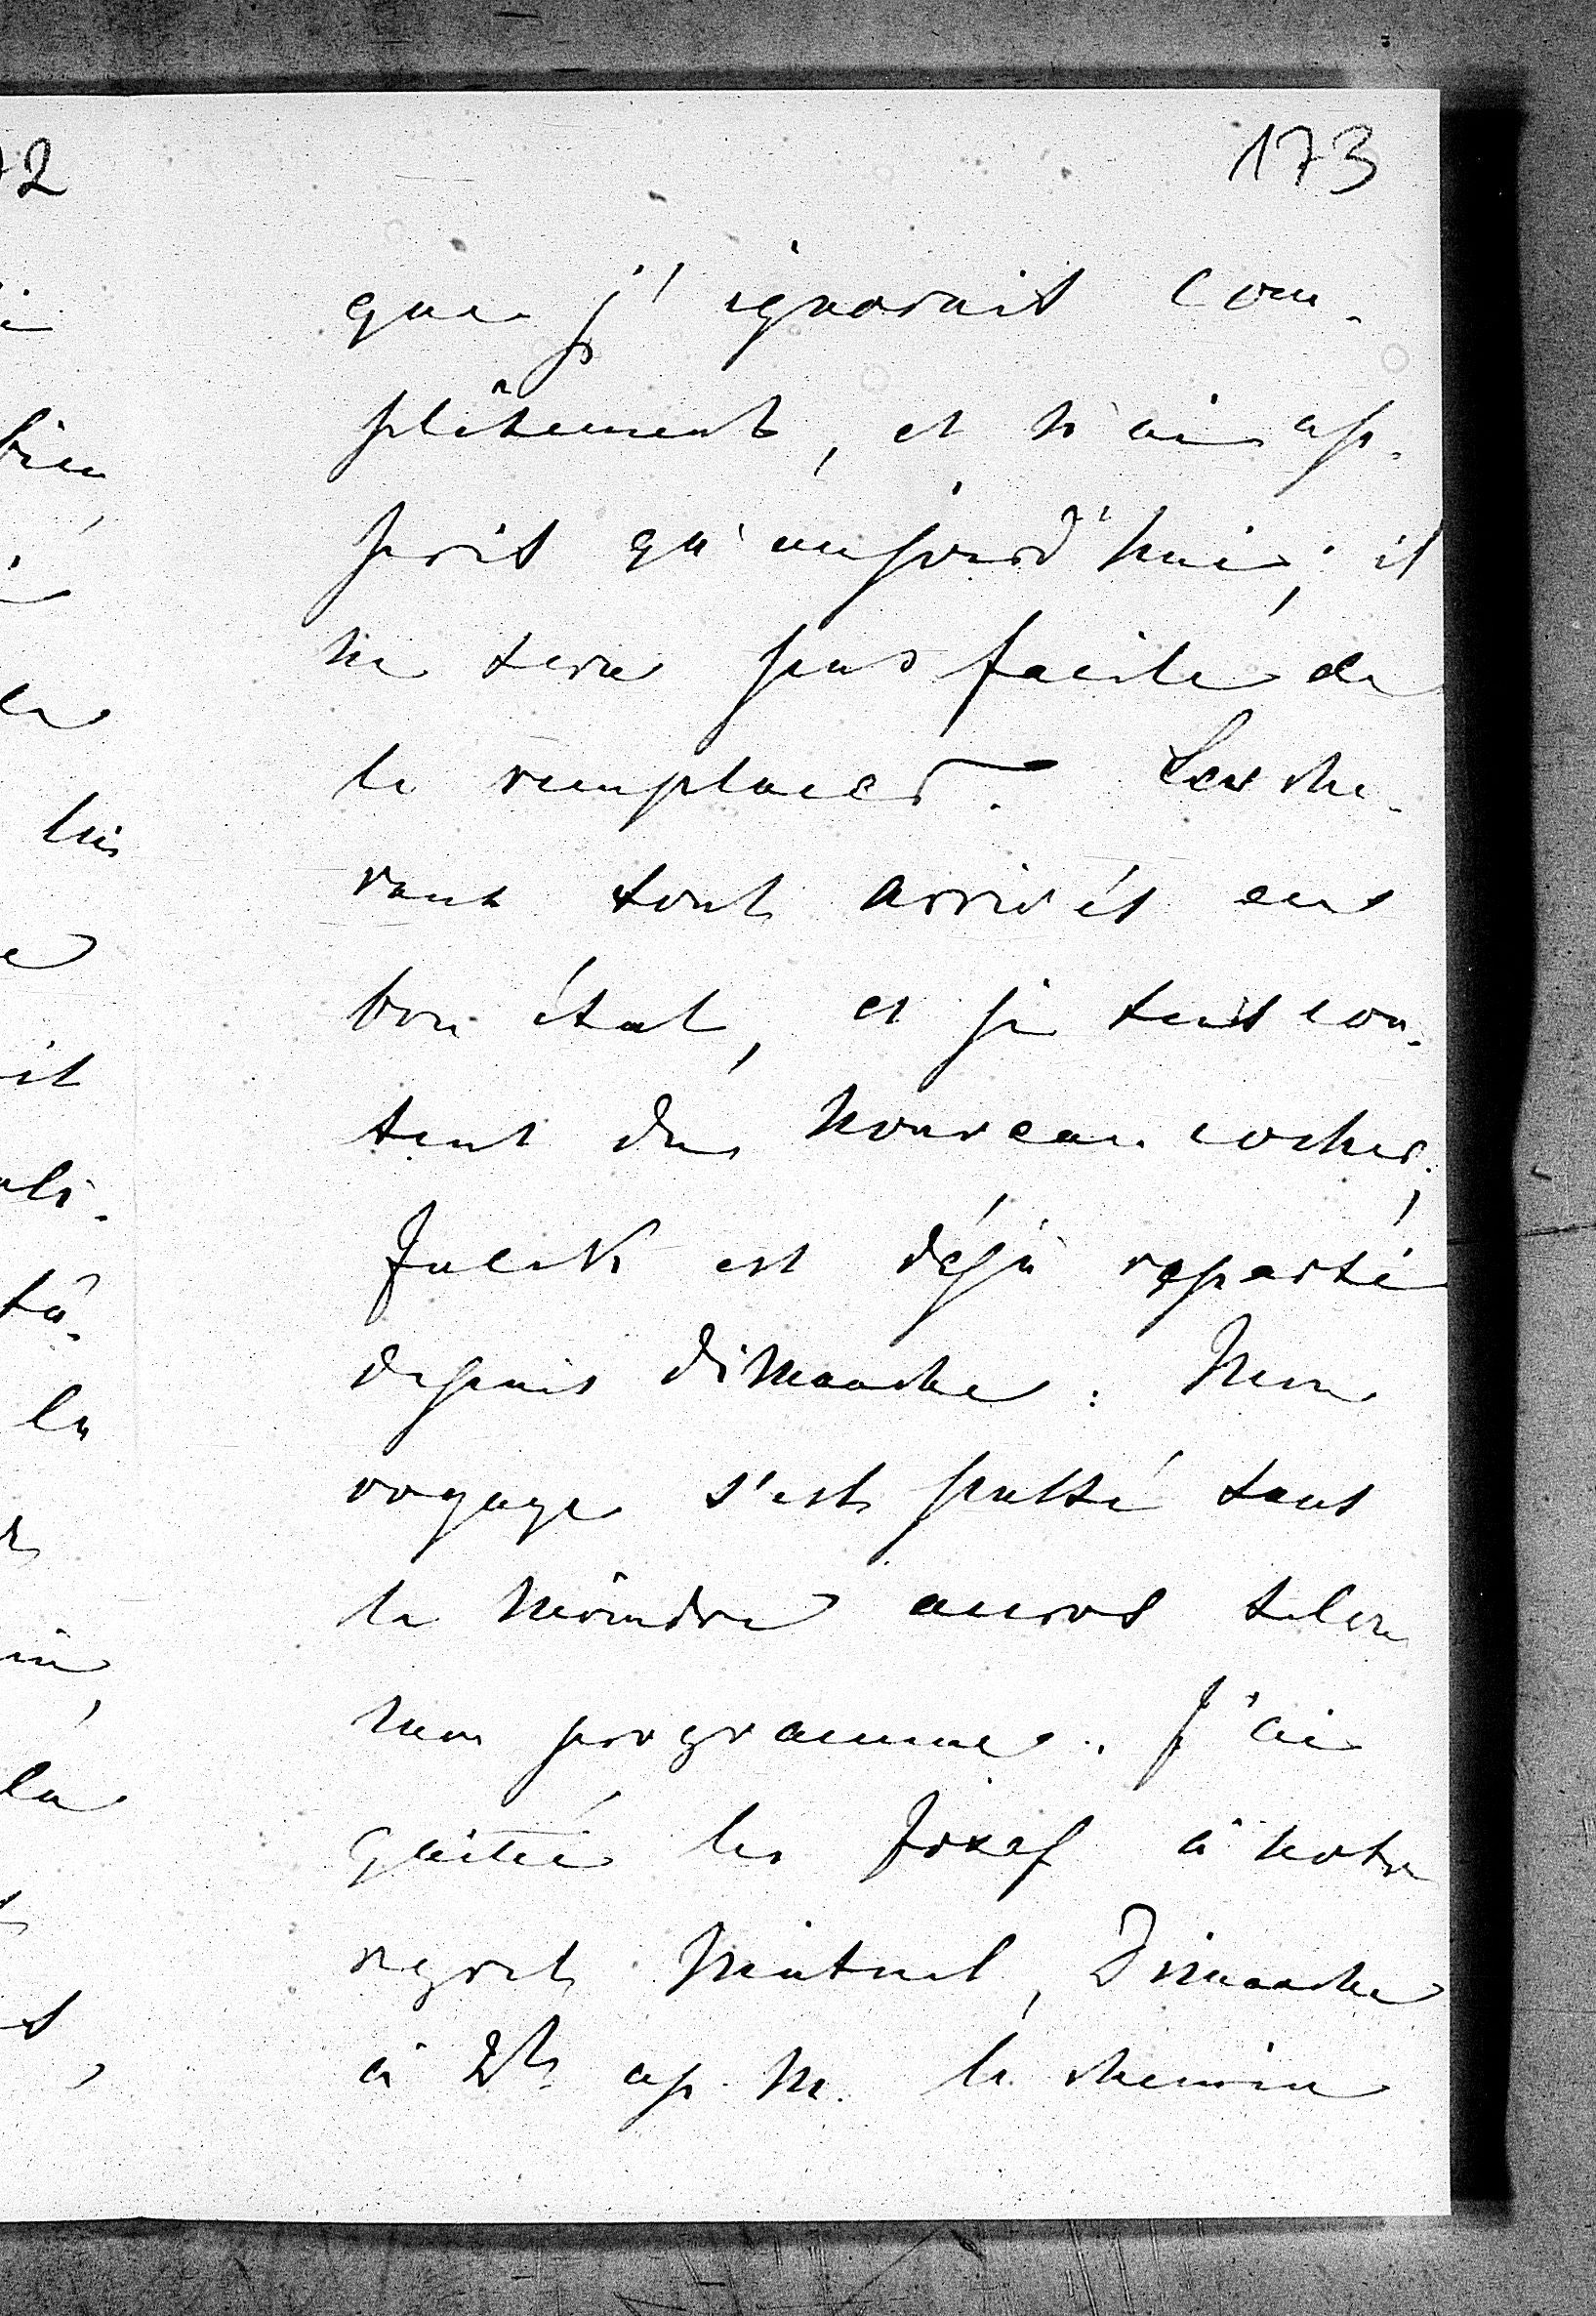 173
que j'ignorais com-
plètement, et n'ai ap-
pris qu'aujourd'hui; il
ne sera pas facile de
le remplacer. Les che-
vaux sont arrivés en
bon état, et je suis con-
tent du nouveau cocher;
Jacek est déjà reparti
depuis dimanche. Mon
voyage s'est passé sans
le moindre accros selon
mon programme. J'ai
quitté les Józef à notre
regret mutuel, Dimanche
à 2h ap. m. le chemin